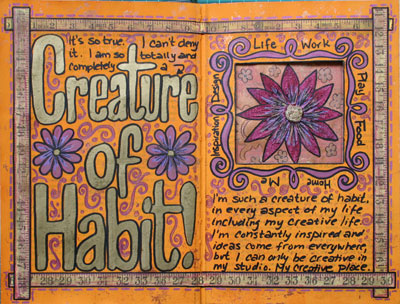 It's so true. I can't deny
it. I am so totally and
completely a
Creature
of
Habit!
Life Work
Play Food
Home Me
Inspiration Design
I'm such a creature of habit,
in every aspect of my life
including my creative life.
I'm constantly inspired and
ideas come from everywhere,
but I can only be creative in
my studio. My creative place